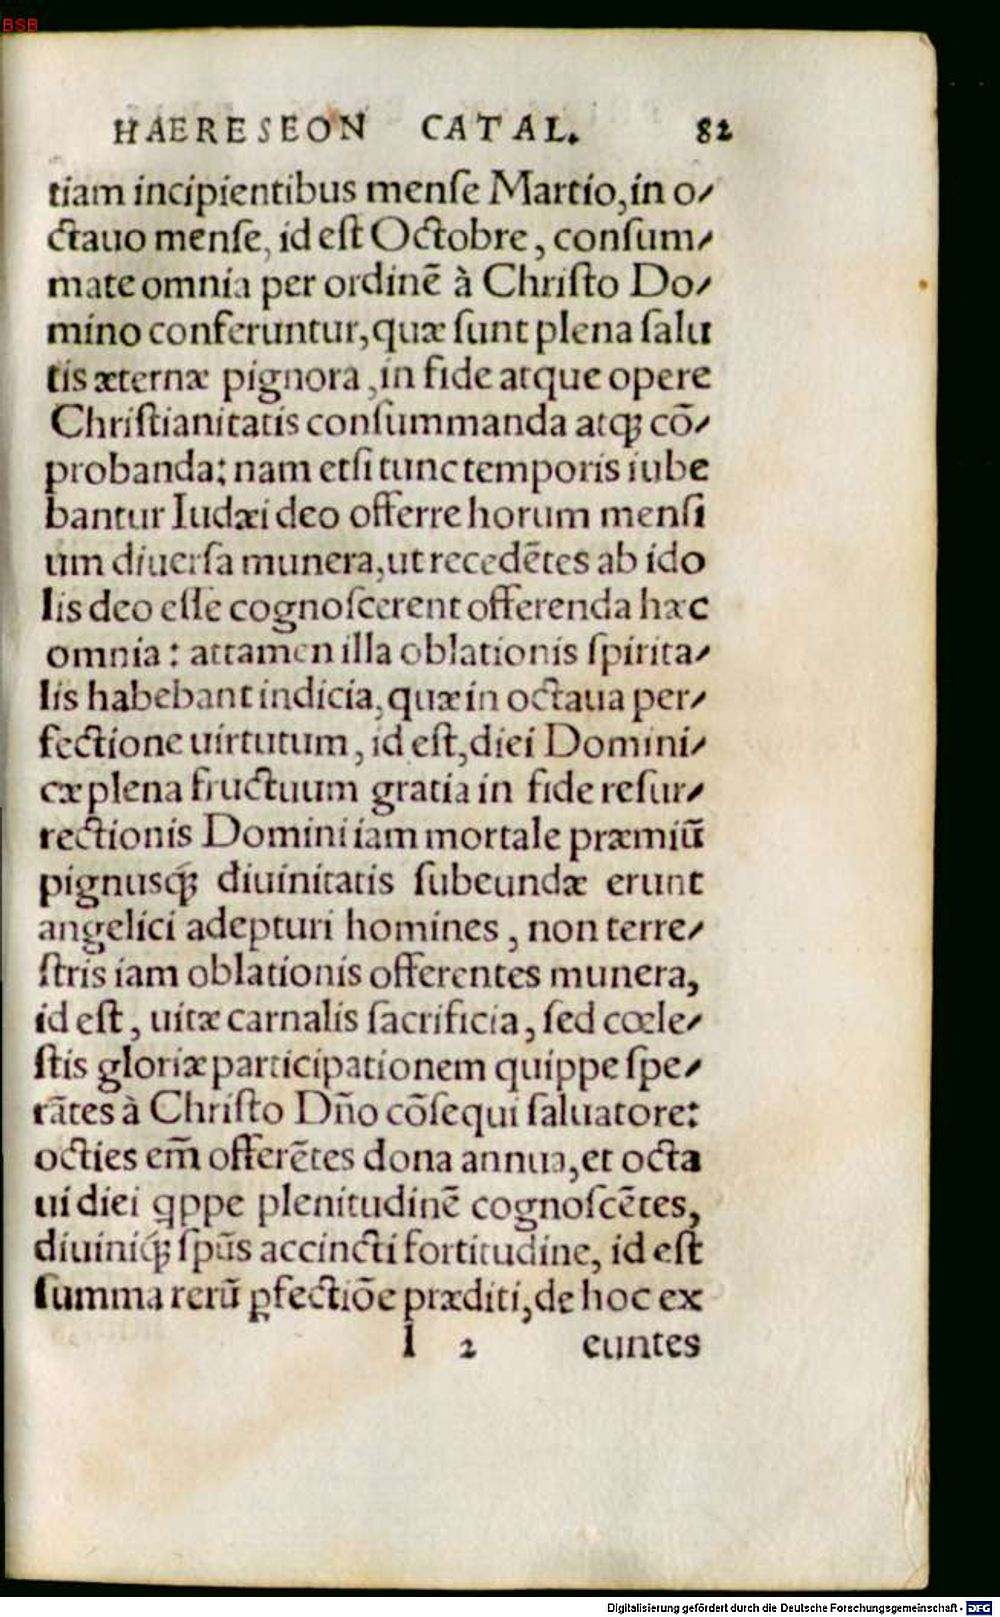 BSB
HAERESEON CATAL. 82
tiam incipientibus menſe Martio, in o⸗
ctauo menſe, id eſt Octobre, conſum⸗
mate omnia per ordinē à Chriſto Do⸗
mino conferuntur, quæ ſunt plena ſalu
tis æternæ pignora, in fide atque opere
Chriſtianitatis conſummanda atq; cō⸗
probanda: nam etſi tunc temporis iube
bantur Iudæi deo offerre horum menſi
um diuerſa munera, ut recedētes ab ido
lis deo eſſe cognoſcerent offerenda hæc
omnia: attamen illa oblationis ſpirita⸗
lis habebant indicia, quæ in octaua per⸗
fectione uirtutum, id eſt, diei Domini⸗
cæ plena fructuum gratia in fide reſur⸗
rectionis Domini iam mortale præmiū
pignusq́; diuinitatis ſubeundæ erunt
angelici adepturi homines, non terre⸗
ſtris iam oblationis offerentes munera,
id eſt, uitæ carnalis ſacrificia, ſed cœle⸗
ſtis gloriæ participationem quippe ſpe⸗
rātes à Chriſto Dn̄o cōſequi ſaluatore:
octies em̄ offerētes dona annua, et octa
ui diei qppe plenitudinē cognoſcētes,
diuiniq́; ſpūs accincti fortitudine, id eſt
ſumma rerū ꝑfectiōe præditi, de hoc ex
l 2 euntes
Digitalisierung gefördert durch die Deutsche Forschungsgemeinschaft - DFG